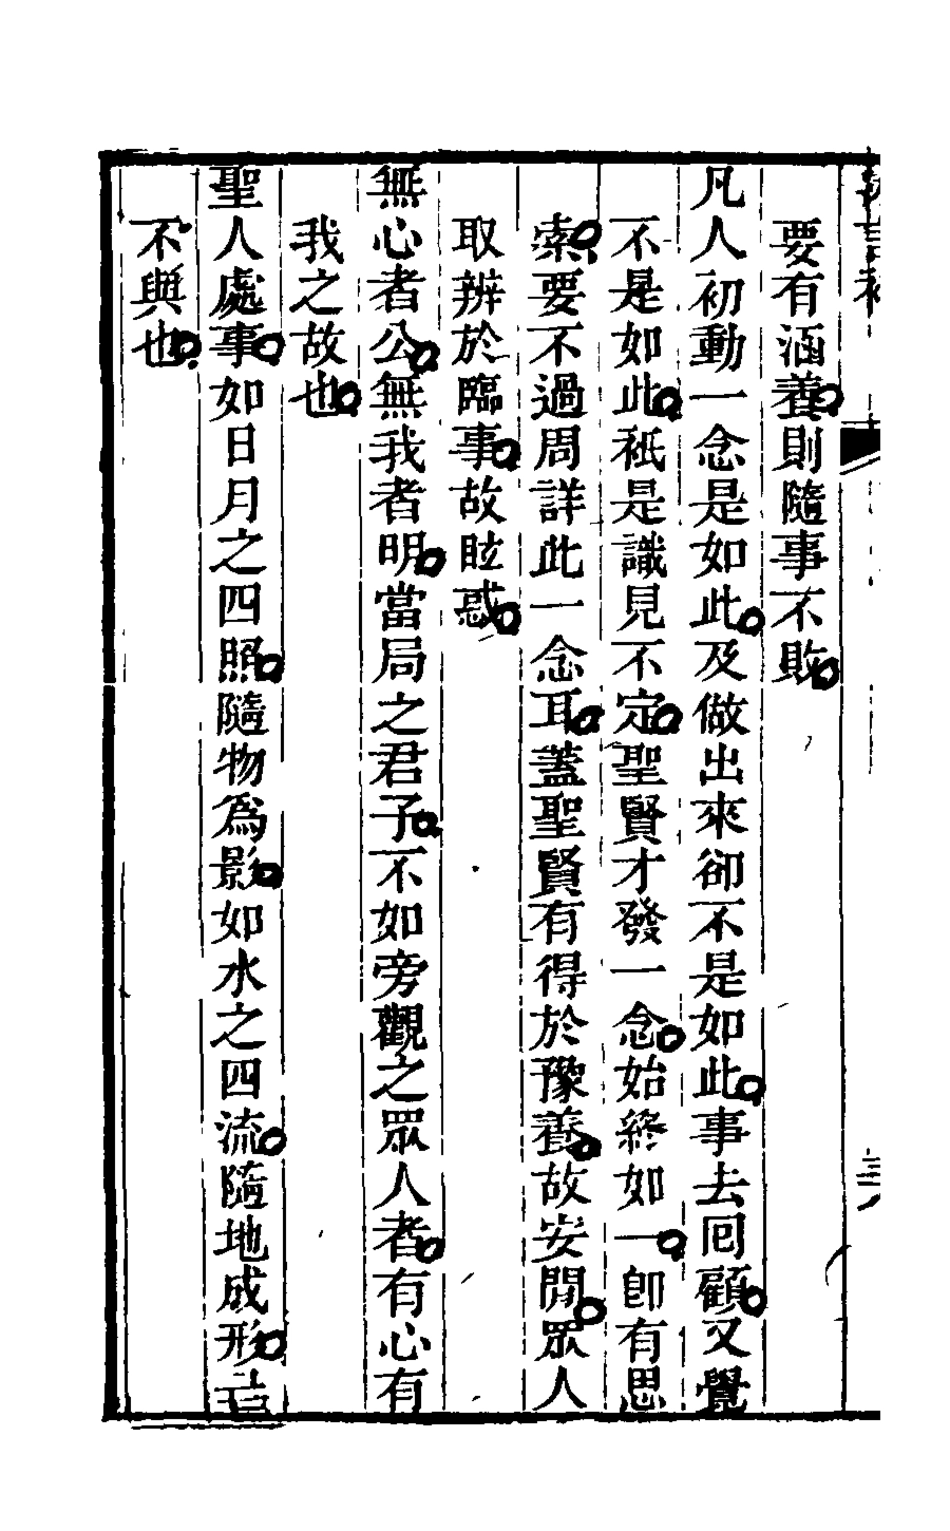 要有涵養則隨事不敗
凡人初動一念是如此及做出來卻不是如此事去囘顧又覺
不是如此祗是識見不定聖賢才發一念始終如一卽有思
索要不過周詳此一念耳蓋聖賢有得於豫養故安閒眾人
取辨於臨事故眩惑
無心者公無我者明當局之君子不如旁觀之眾人者有心有
我之故也
聖人處事如日月之四照隨物爲影如水之四流隨地成形己
不與也
三八